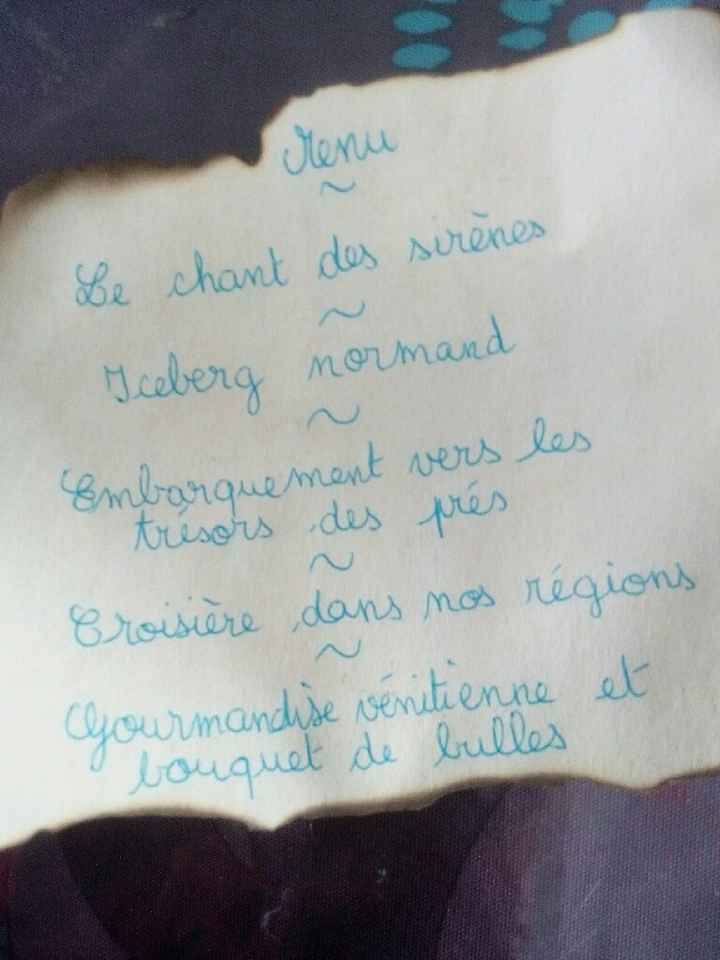 Menu
~
Le chant des sirènes
~
Iceberg normand
~
Embarquement vers les
trésors des prés
~
Croisière dans nos régions
~
Gourmandise vénitienne et
bouquet de bulles